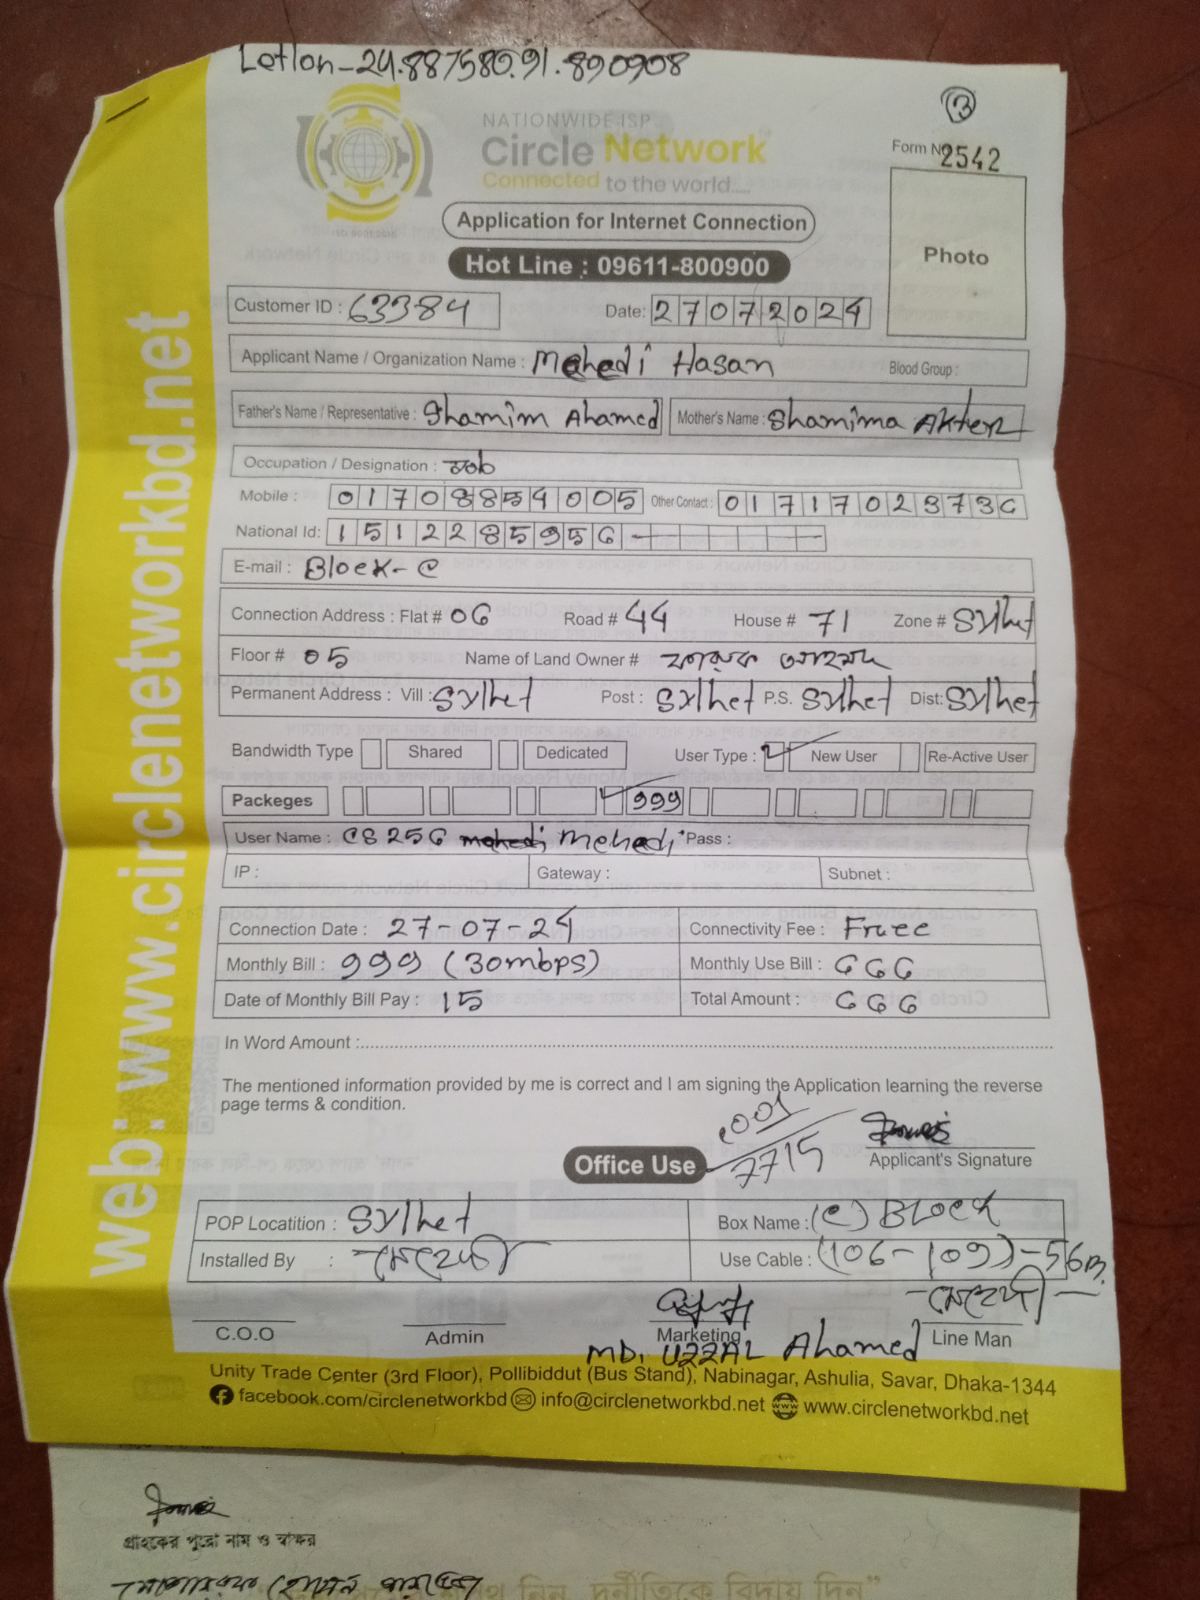 Letlon-24.887580.91.890908
3
NATIONWIDE ISP
Circle Network
Connected to the world....
ISO 9001:2015
Form No 2542
Photo
Application for Internet Connection
Hot Line : 09611-800900
Customer ID : 63384 Date: 27072024
Applicant Name / Organization Name : Mehedi Hasan Blood Group :
Father's Name / Representative : Shamim Ahamed Mother's Name : Shamima Akter
Occupation / Designation : Job
Mobile : 01708854005 Other Contact : 01717023736
National Id: 1512285956
E-mail : Block-C
Connection Address : Flat # 06 Road # 44 House # 71 Zone # Sylhet
Floor # 05 Name of Land Owner # ফারুক আহমদ
Permanent Address : Vill : Sylhet Post : Sylhet P.S. Sylhet Dist: Sylhet
Bandwidth Type Shared Dedicated User Type : New User Re-Active User
Packeges 999
User Name : CS256 mehedi Mehedi Pass :
IP : Gateway : Subnet :
Connection Date : 27-07-24 Connectivity Fee : Free
Monthly Bill : 999 (30mbps) Monthly Use Bill : 666
Date of Monthly Bill Pay : 15 Total Amount : 666
In Word Amount :
The mentioned information provided by me is correct and I am signing the Application learning the reverse
page terms & condition.
001
7715
Applicant's Signature
Office Use
POP Locatition : Sylhet Box Name : (C) Block
Installed By : মেহেদী Use Cable : (106-109)-56m.
মেহেদী
C.O.O Admin Marketing Line Man
MD. UZZAL Ahamed
Unity Trade Center (3rd Floor), Pollibiddut (Bus Stand), Nabinagar, Ashulia, Savar, Dhaka-1344
facebook.com/circlenetworkbd info@circlenetworkbd.net www.circlenetworkbd.net
web: www.circlenetworkbd.net
গ্রাহকের পুরো নাম ও স্বাক্ষর
নিন, দুর্নীতিকে বিদায় দিন”